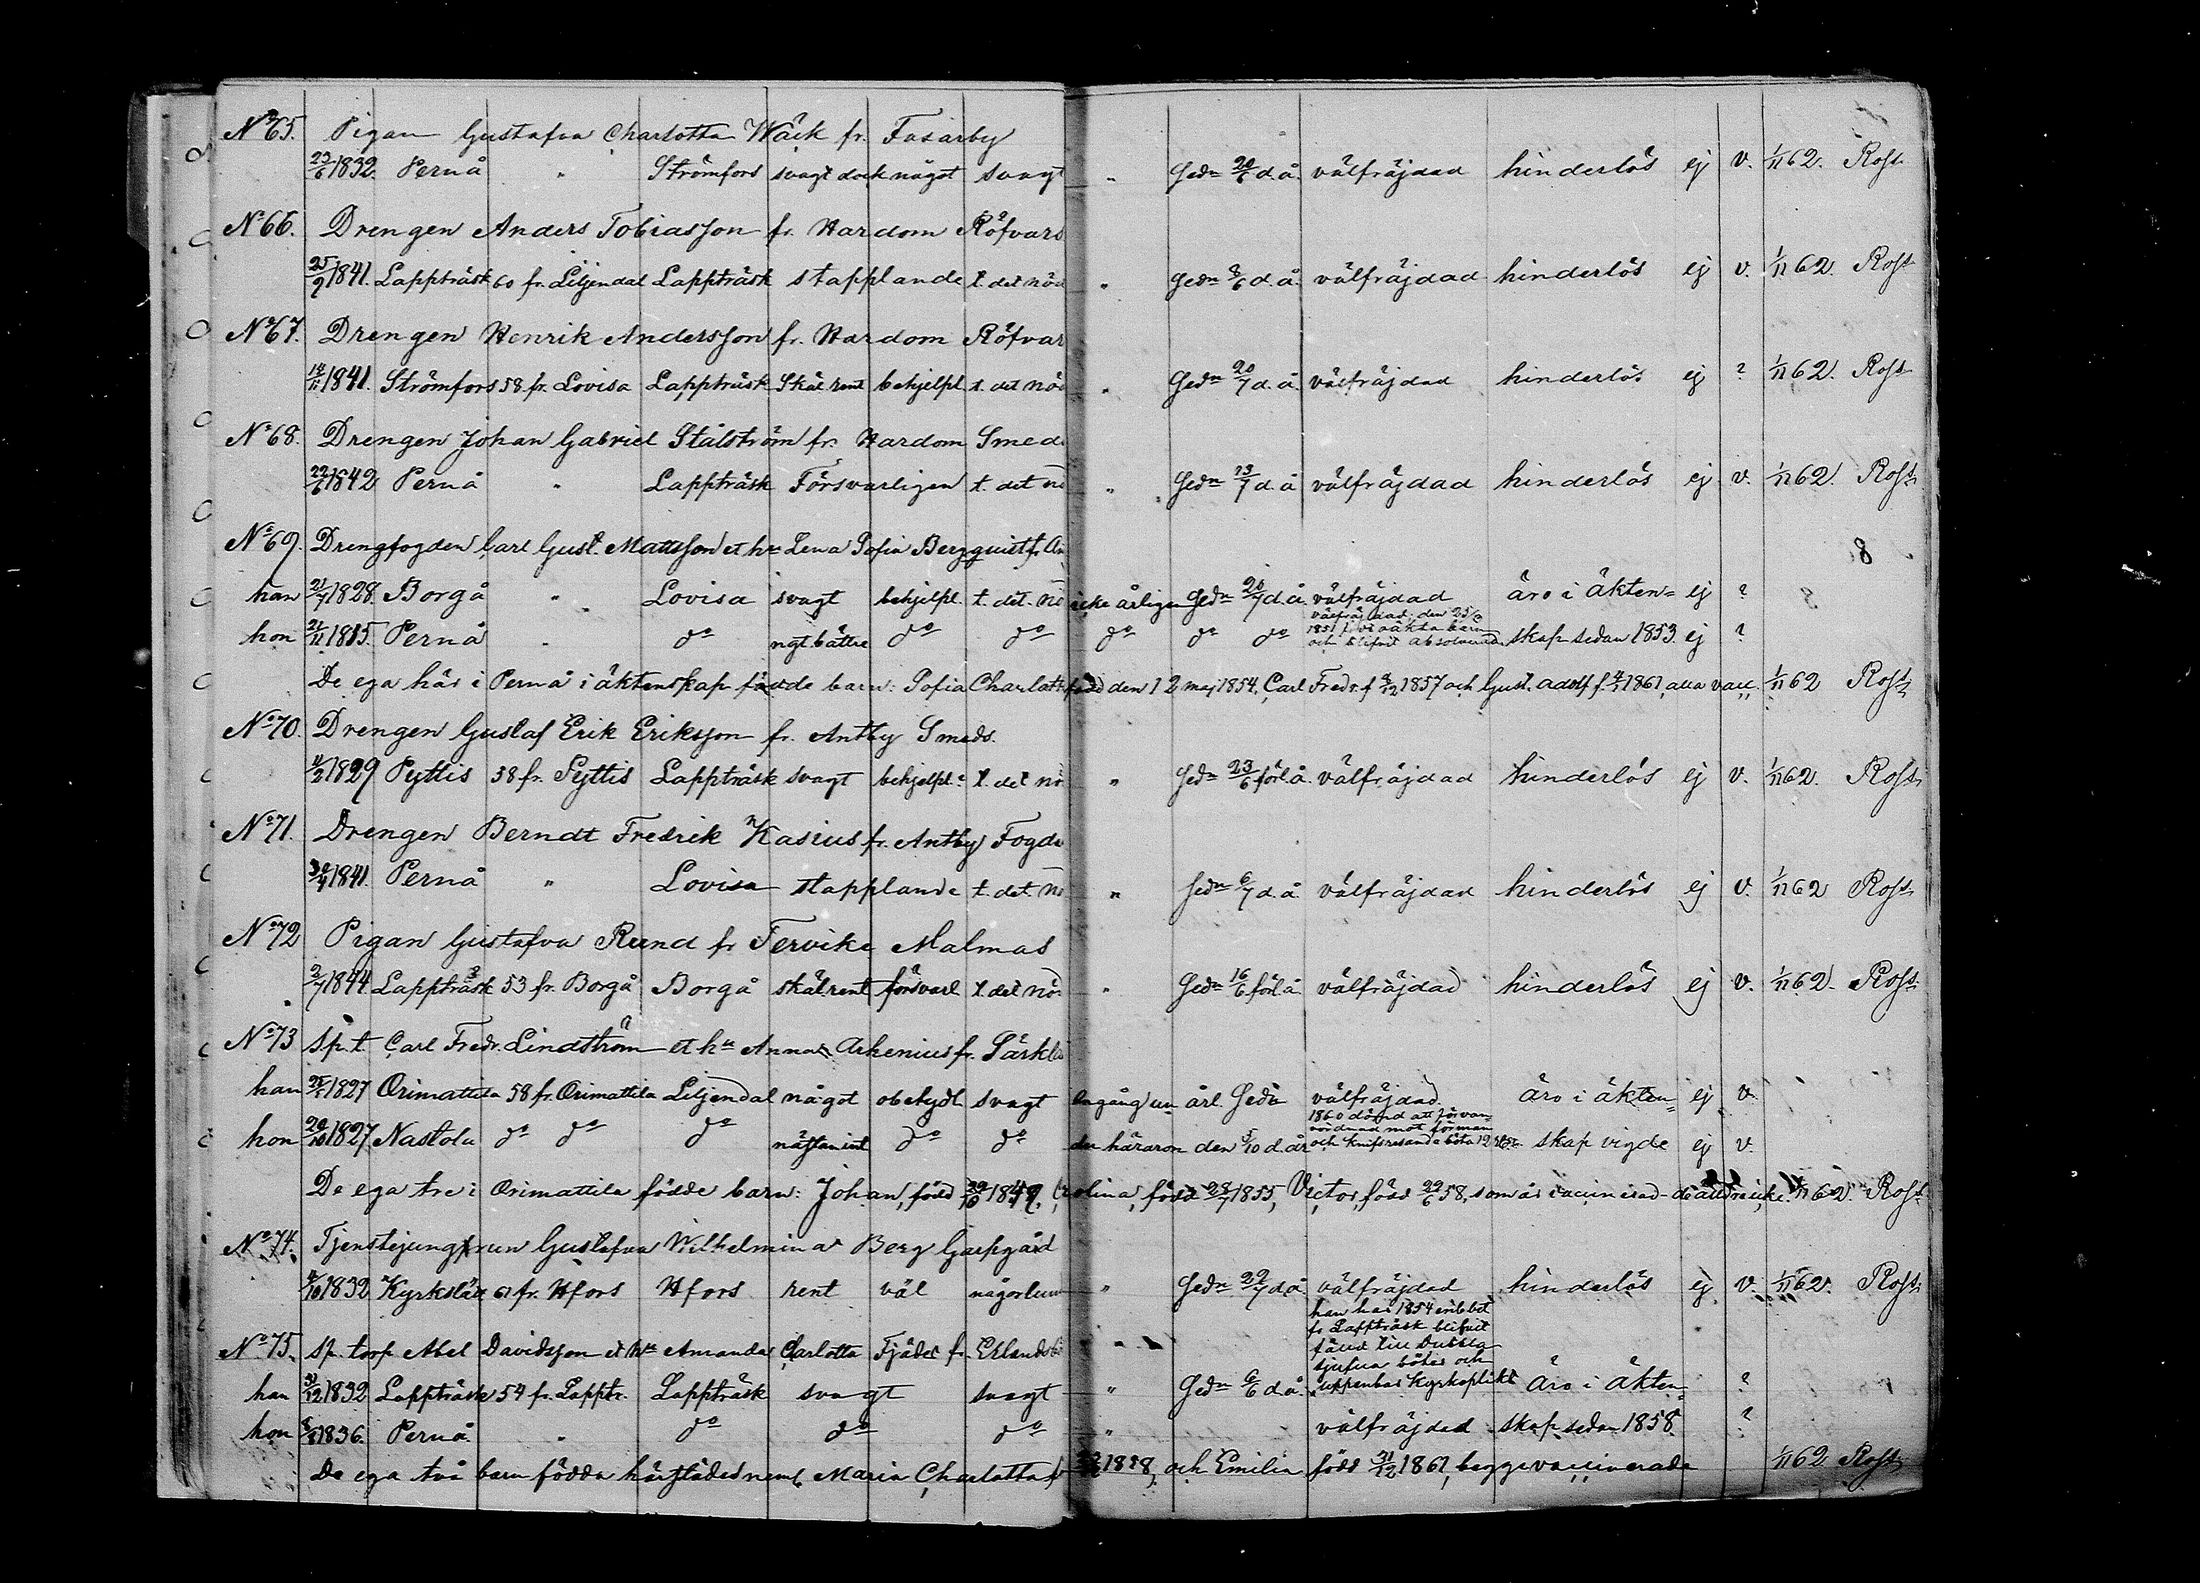 No 65. Pigan Gustafva Charlotta Wäck fr. Fasarby
23/6 1832 Pernå " Strömfors svagt dock något svagt " Gedn 20/6 d.å. välfräjdad hinderlös ej v. 1/11 62. Rosk
No 66. Drengen Anders Tobiasson fr. Hardom Röfvars
25/9 1841. Lappträsk 60 fr. Liljendal Lappträsk stapplande t. det nöd " Gedn 8/6 d.å. välfräjdad hinderlös ej v. 1/11 62. Rosk
No 67. Drengen Henrik Andersson fr. Hardom Röfvar
14/11 1841. Strömfors 58 fr. Lovisa Lappträsk Skäl. rent behjelpl t. det nöd " Gedn 20/7 d.å. välfräjdad hinderlös ej ? 1/11 62. Rosk
No 68. Drengen Johan Gabriel Stålström fr. Hardom Smeds
22/6 1842 Pernå " Lappträsk Försvarligen t. det nö " Gedn 13/7 d.å välfräjdad hinderlös ej v. 1/11 62. Rosk
No 69. Drengfogden Carl Gust. Mattsson et hu Lena Sofia Bergquist fr. An 8
han 21/7 1828. Borgå " Lovisa svagt behjelpl. t. det. nö icke årligen Gedn 20/7 d.å. välfräjdad äro i äkten= ej ?
hon 21/11 1815. Pernå " do ngt. bättre do do do do do välfräjdad, den 25/ 1851 f. oäkta barn och blifvit absolverad skap sedan 1853. ej ?
De ega här i Pernå i äktenskap födde barn: Sofia Charlott född den 12 maj 1854, Carl Fredr. f. 4/12 1857 och Gust. Adolf f. 4/1 1861, alla vacc. 1/11 62 Rosk
No 70. Drengen Gustaf Erik Eriksson fr. Antby Smeds.
4/2 1829 Pyttis 58 fr. Pyttis Lappträsk svagt behjelpl. t. det nö " Gedn 23/6 förl.å. välfräjdad hinderlös ej v. 1/11 62. Rosk
No 71. Drengen Berndt Fredrik Kasius fr. Antby Fogde
30/4 1841. Pernå " Lovisa stapplande t. det nö " Gedn 6/7 d.å. välfräjdad hinderlös ej v. 1/11 62 Rosk
No 72 Pigan Gustafva Rund fr Tervike Malmas
2/7 1844 Lappträsk 53 fr. Borgå Borgå skäl. rent försvarl t. det nö " Gedn 16/6 förl å välfräjdad hinderlös ej v. 1/11 62. Rosk
No 73 sp. t. Carl Fredr. Lindström et hu Anna Arhenius fr. Särkla
han 25/ 1827 Orimattila 58 fr. Orimattila Liljendal något obetydl. svagt engång un årl. Gedn välfräjdad. äro i äkten= ej v.
hon 20/10 1827, Nastola do do do nästan int do do der häraron den 5/10 d.år 1860 dömd att för van vördnad mot förman och knifsresande böta 12 skap vigde ej v.
De ega tre i Orimattila födde barn: Johan, född 29/10 1849, Carolina, född 28/7 1855, Victor, född 22/6 58, som är vaccinerad - de andra icke. 1/11 62. Rosk
No 74. Tjenstejungfrun Gustafva Wilhelmina Berg Garpgård
4/10 1832 Kyrkslätt 61 fr. Hfors Hfors rent väl någorlun " Gedn 22/7 d.å. välfräjdad hinderlös ej v. 1/11 62. Rosk
han har 1854 enl. bet
fr. Lappträsk blifvit
fäld till dubbla
No 75. sp. torp. Abel Davidsson et hu Amanda Charlotta Fjäder fr. Erlandsbö "
sjufva böter och
han 31/12 1832 Lappträsk 54 fr. Lapptr. Lappträsk svagt svagt " Gedn 6/6 d.å. uppenbar kyrkoplikt äro i äkten= ?
hon 8/8 1836. Pernå " do do do " välfräjdad skap sedan 1858 ?
De ega två barn födda härstädes neml. Maria Charlotta f 1858, och Emilia född 31/12 1861, begge vaccinerade 1/11 62 Rosk